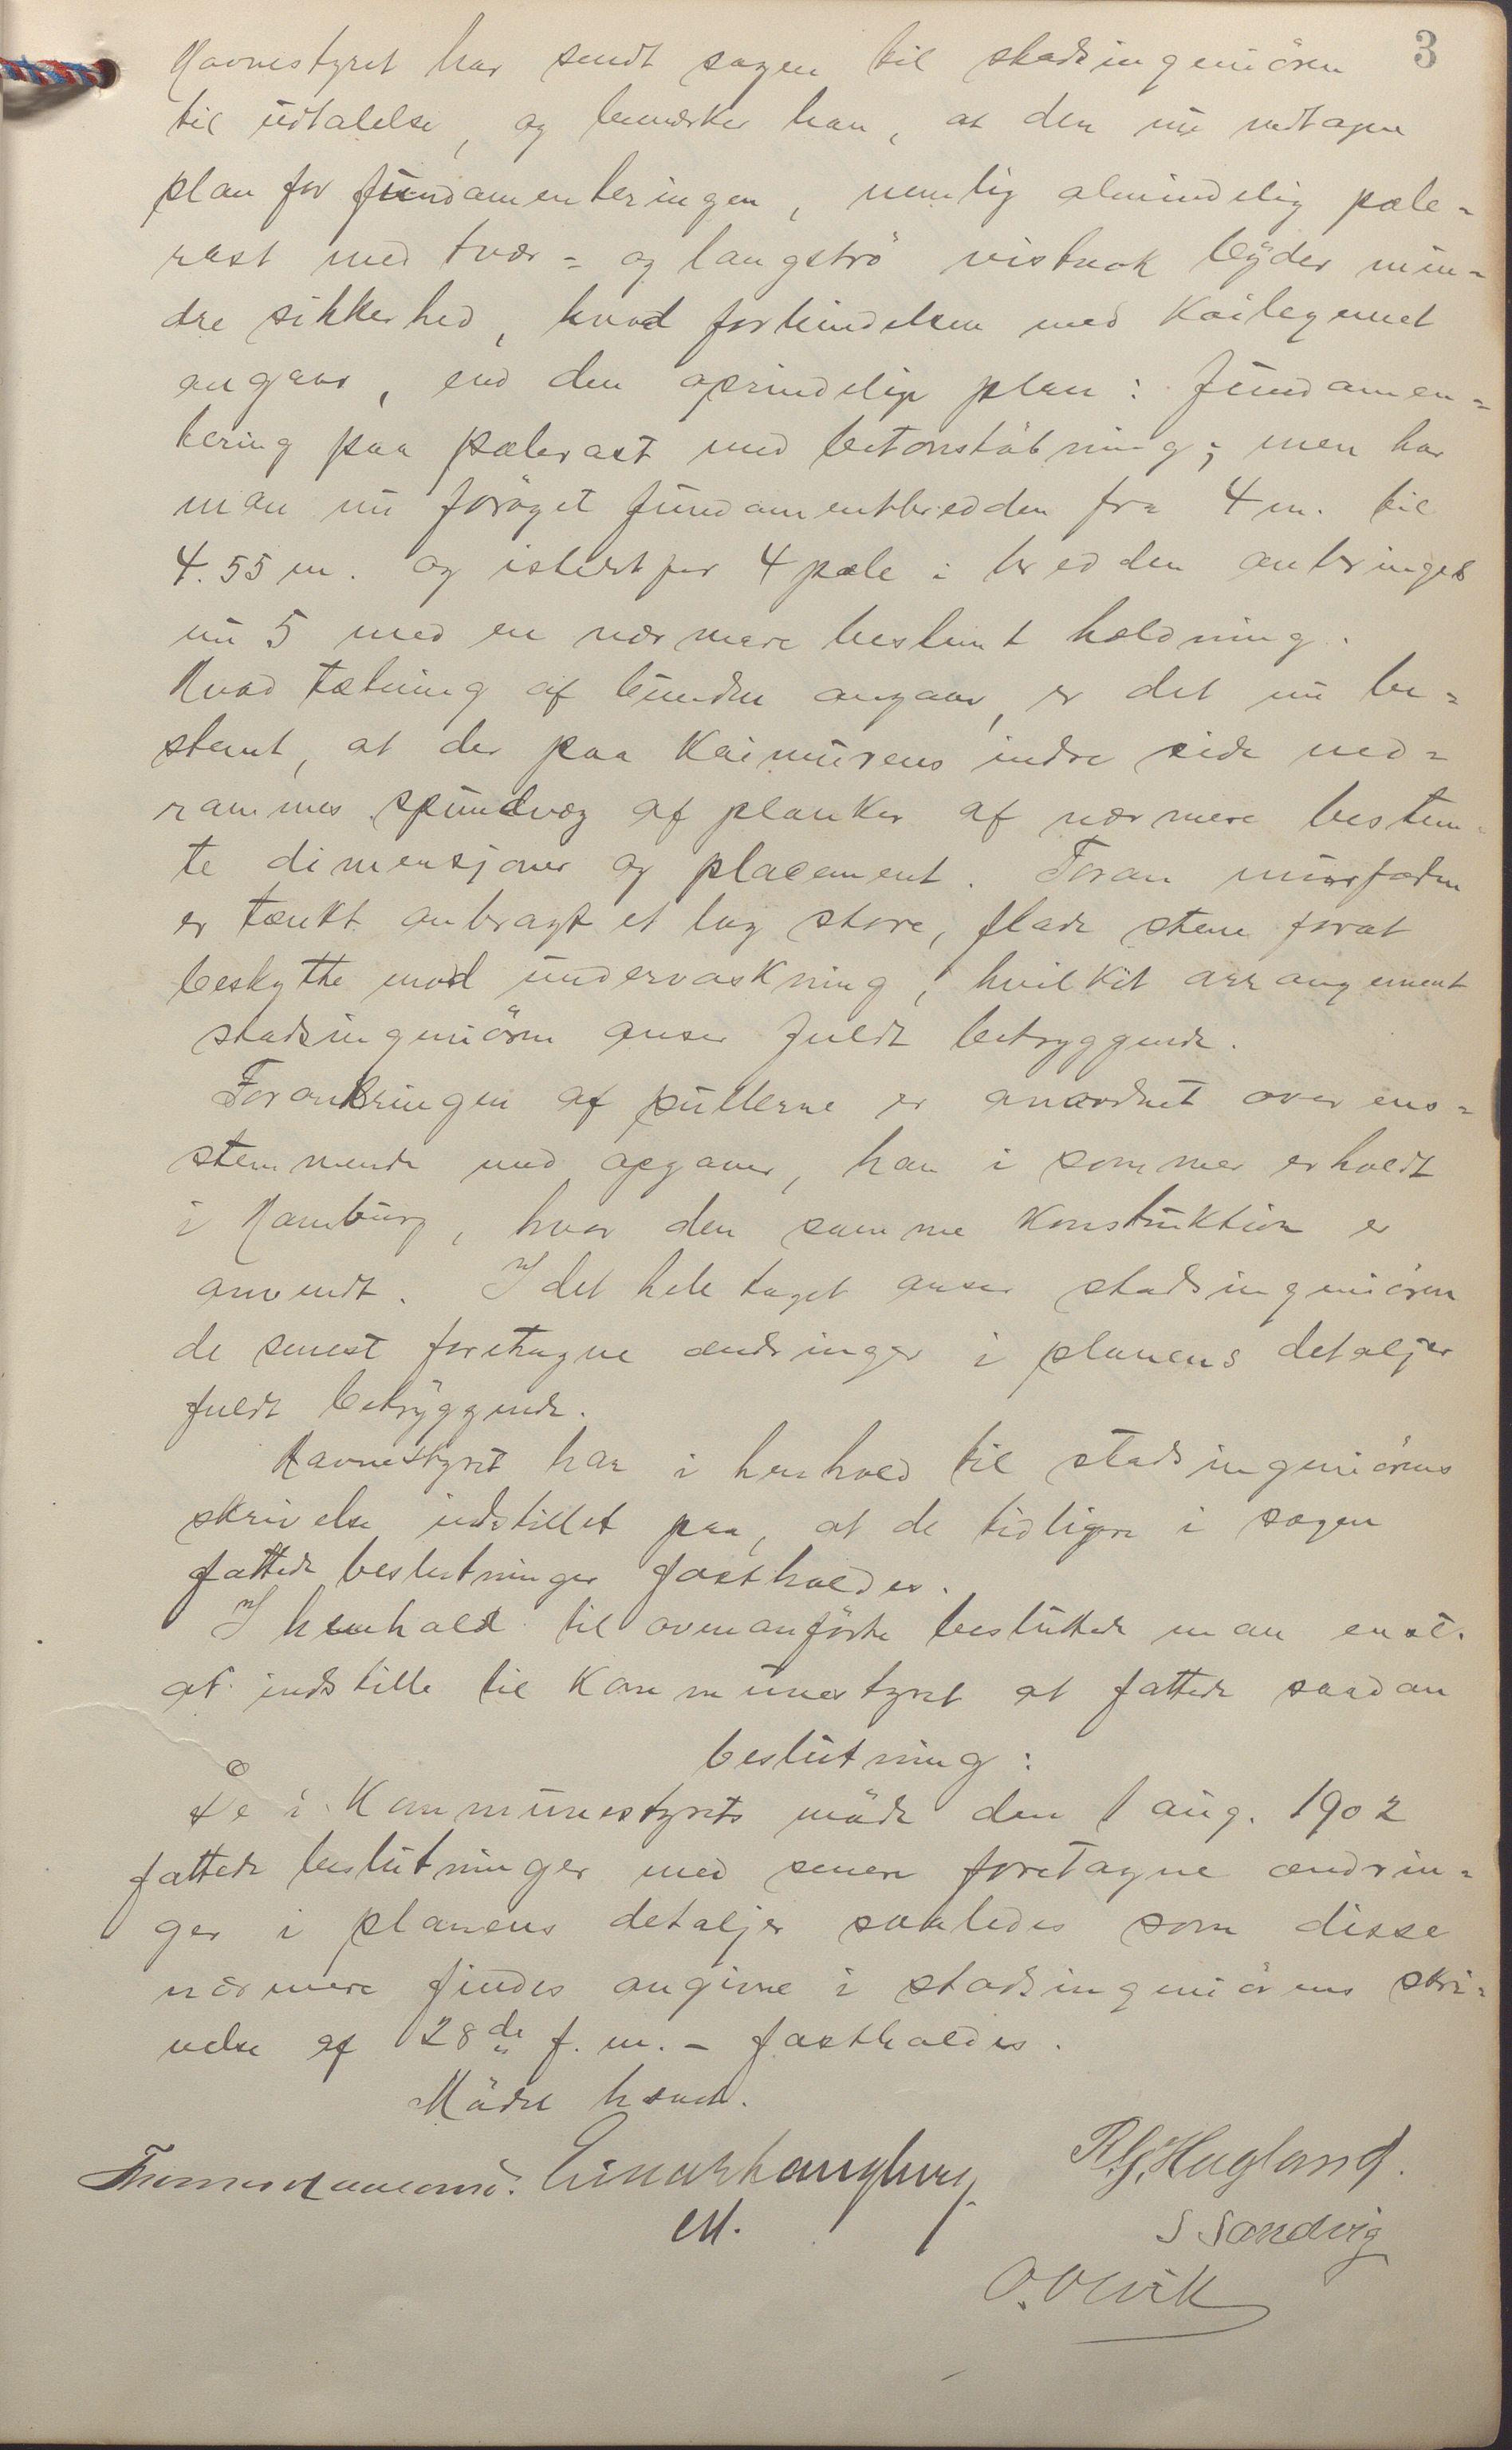 3
Havnestyret har sendt sagen til stadsingeniören
til udtalelse, og bemærker han, at den nu vedtagne
plan for fundamenteringen, nemlig almindelig pæle-
rast med tvær- og langströ vistnok byder min-
dre sikkerhed, hvad forbindelsen med kailegemet
angaar, end den oprindelige plan: Fundamen-
tering paa pælerast med betonstöbning; men har
man nu foröget fundamentbredden fra 4 m. til
4.55 m. og istedetfor 4 pæle i bredden anbringes
nu 5 med en nærmere bestemt hældning.
Hvad tætning af bunden angaar, er det nu be-
stemt, at der paa kaimurens indre side ned-
rammes spundvæg af planker af nærmere bestem-
te dimensjoner og placement. Foran murfoden
er tænkt anbragt et lag store, flade stene forat
beskytte mod undervaskning, hvilket arrangement
stadsingeniören anser fuldt betryggende.
Forankringen af pullerne er anordnet overens-
stemmende med opgaver, han i sommer erholdt
i Hamburg, hvor den samme konstruktion er
anvendt. I det hele taget anser stadsingeniören
de senest foretagne ændringer i planens detaljer
fuldt betryggende.
Havnestyret har i henhold til stadsingeniörens
skrivelse indstillet paa, at de tidligere i sagen
fattede beslutninger fastholdes.
I henhold til ovenanförte besluttede man enst.
at indstille til kommunestyret at fatte saadan
beslutning:
De i kommunestyrets möde den 1 aug. 1902
fattede beslutninger med senere foretagne ændrin-
ger i planens detaljer saaledes som disse
nærmere findes angivne i stadsingeniörens skri-
velse af 28de f. m. - fastholdes.
Mödet hævet.
Einar Langberg R. G. Hagland.
S Sandvig
O. Olvik